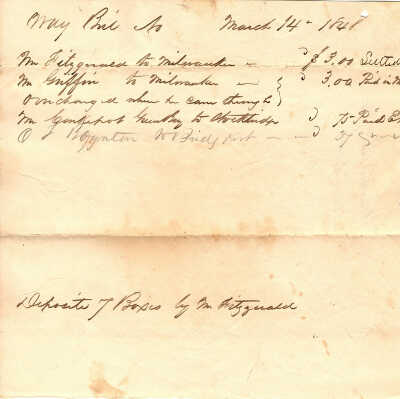 Way Bill No March 14th 184
Mr Fitzgerald to Milwaukee $ 3.00 Settled
Mr Griffin to Milwaukee 3.00 Paid in
overcharged when he came through
Mr to 75 Paid
O Boynton to Bridgeport 37
Deposite 7 Boxes by Mr Fitzgerald